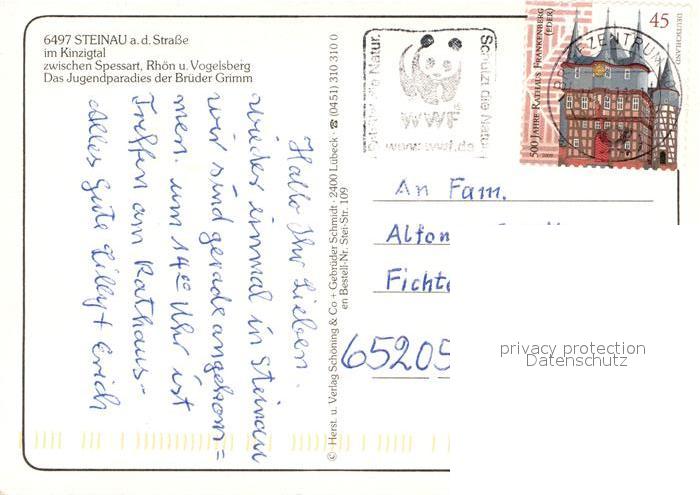 6497 STEINAU a. d. Straße
im Kinzigtal
zwischen Spessart, Rhön u. Vogelsberg
Das Jugendparadies der Brüder Grimm
Hallo Ihr Lieben.
wieder einmal in Steinau
wir sind gerade angekom=
men. um 14 00 Uhr ist
Treffen am Rathaus-
Alles Gute Lilly + Erich
© Herst. u. Verlag Schöning & Co + Gebrüder Schmidt · 2400 Lübeck · ☎ (0451) 310 310 0
en Bestell-Nr. Stei-Str. 109
Natur.
WWF
www.wwf.de
Schützt die Natur
500 JAHRE RATHAUS FRANKENBERG
(EDER)
45
DEUTSCHLAND
2009
ZENTRUM
An Fam.
Alfon
Fichte
65205
privacy protection
Datenschutz